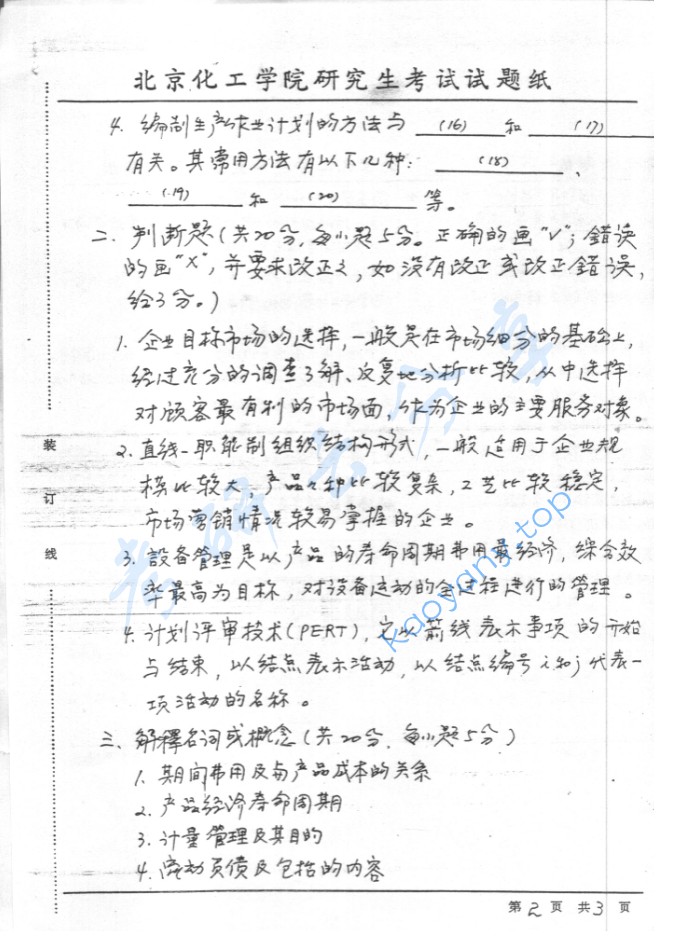 北京化工学院研究生考试试题纸
4. 编制生产作业计划的方法与 (16) 和 (17)
有关。其常用方法有以下几种: (18) 、
(19) 和 (20) 等。
二、判断题(共20分,每小题5分。正确的画"√";錯误
的画"×",并要求改正之,如没有改正或改正錯误,
给3分。)
1. 企业目标市场的选择,一般是在市场细分的基础上,
经过充分的调查了解、反复地分析比较,从中选择
对顾客最有利的市场面,作为企业的主要服务对象。
2. 直线-职能制组织结构形式,一般适用于企业规
模比较大,产品品种比较复杂,工艺比较稳定,
市场营销情况较易掌握的企业。
3. 設备管理是以产品的寿命周期费用最经济,综合效
率最高为目标,对设备运动的全过程进行的管理。
4. 计划评审技术(PERT),它以箭线表示事项的开始
与结束,以结点表示活动,以结点编号i和j代表一
项活动的名称。
三、解釋名词或概念(共20分,每小题5分)
1. 期间费用及与产品成本的关系
2. 产品经济寿命周期
3. 计量管理及其目的
4. 流动负债及包括的内容
装
订
线
考研云分享
kaoyany.top
第2页 共3页